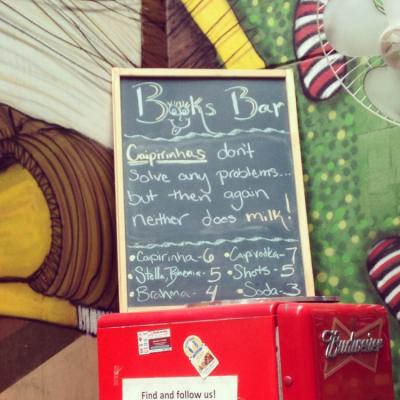 Books Bar
Caipirinhas don't
solve any problems...
but then again
neither does milk!
•Caipirinha-6 •Capvodka-7
•Stella, Bohemia-5 •Shots-5
•Brahma-4 •Soda-3
Budweiser
Find and follow us!